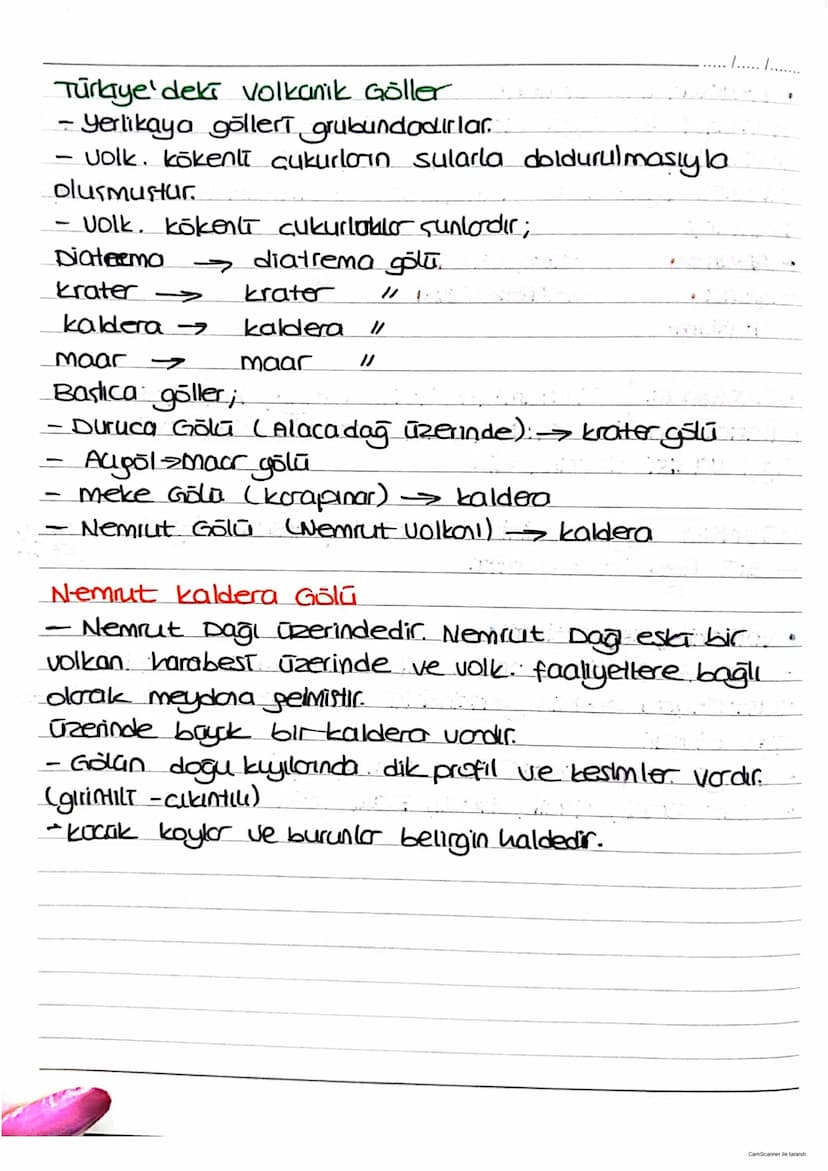 ...../...../.......
Türkiye'deki Volkanik Göller
- Yerlikaya gölleri grubundadırlar.
- Volk. kökenli çukurların sularla doldurulmasıyla
oluşmuştur.
- Volk. kökenli çukurluklar şunlardır;
Diatrema → diatrema gölü.
krater → krater "
kaldera → kaldera "
maar → maar "
Başlıca göller;
- Duruca Gölü (Alacadağ üzerinde) → krater gölü
- Acıgöl → Maar gölü
- Meke Gölü (karapınar) → kaldera
- Nemrut Gölü (Nemrut Volkanı) → kaldera
Nemrut Kaldera Gölü
- Nemrut Dağı üzerindedir. Nemrut Dağ eski bir
volkan harabesi üzerinde ve volk. faaliyetlere bağlı
olarak meydana gelmiştir.
üzerinde büyük bir kaldera vardır.
- Gölün doğu kıyılarında dik profil ve kesimler vardır.
(girintili - çıkıntılı)
- küçük koylar ve burunlar belirgin haldedir.
CamScanner ile tarandı